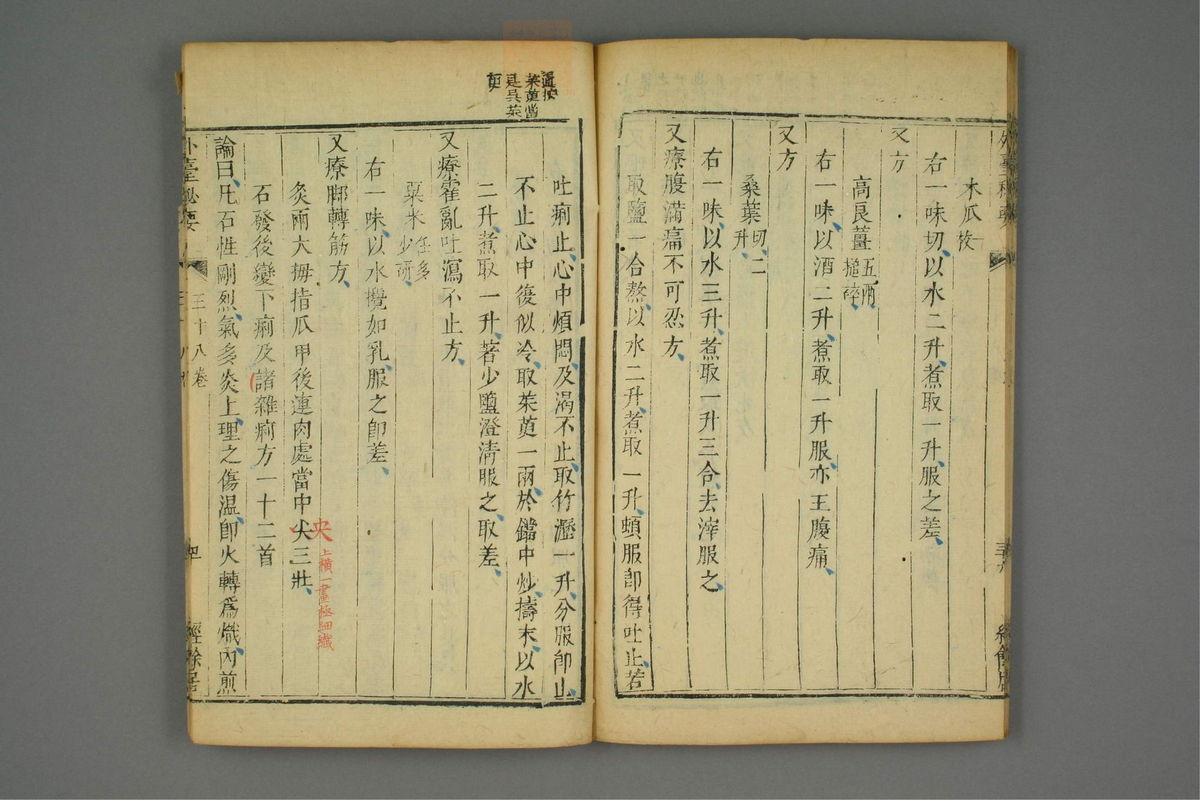 木瓜一枚
右一味切以水二升煮取一升服之差
又方
高良薑五兩搥碎
右一味以酒二升煮取一升服亦主腹痛
又方
桑葉切二升
右一味以水三升煮取一升三合去滓服之
又療腹滿痛不可忍方
取鹽一合熬以水二升煮取一升頓服卽得吐止若
吐痢止心中煩悶及渴不止取竹瀝一升分服卽止
不止心中復似冷取茱萸一兩於鐺中炒擣末以水
二升煮取一升著少鹽澄清服之取差
又療霍亂吐瀉不止方
粟米任多少研
右一味以水攪如乳服之卽差
又療脚轉筋方
灸兩大拇指爪甲後連肉處當中尖三壯
石發後變下痢及諸雜痢方一十二首
論曰凡石性剛烈氣多炎上理之傷溫卽火轉爲熾內煎
茱萸當
是吳茱
萸
央
上橫一畫極細纖
外臺秘要
三十八卷
經餘居